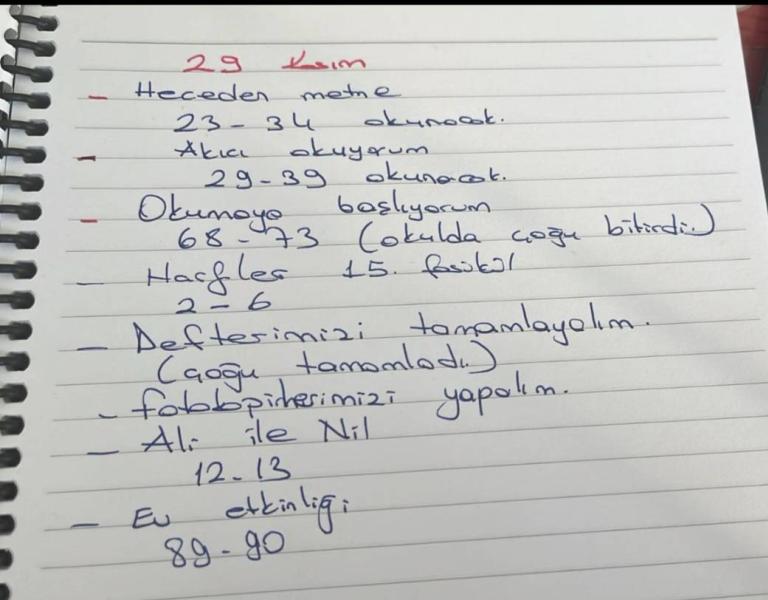 29 Kasım
- Heceden metne
23-34 okunacak.
- Akıcı okuyorum
29-39 okunacak.
- Okumaya başlıyorum
68-73 (okulda çoğu bitirdi.)
- Harfler 15. fasikül
2-6
- Defterimizi tamamlayalım.
(çoğu tamamladı.)
- fotokopilerimizi yapalım.
- Ali ile Nil
12-13
- Ev etkinliği
89-90